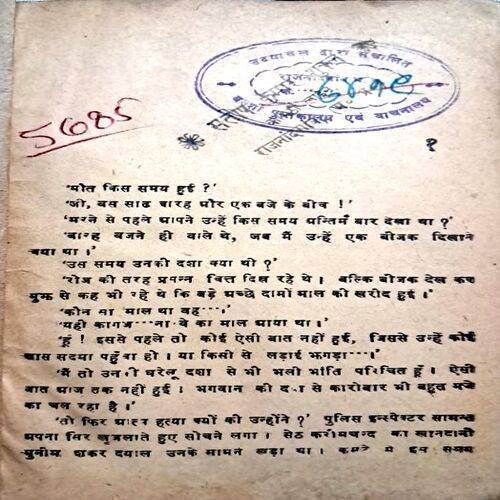 उदयाचल द्वारा संचालित
पुस्तकालय एवं वाचनालय
5685
१
'मौत किस समय हुई ?'
'जी, बस साढ़े बारह और एक बजे के बीच !'
'मरने से पहले आपने उन्हें किस समय अन्तिम बार देखा था ?'
'बारह बजने ही वाले थे, जब मैं उन्हें एक बीजक दिखाने
गया था ।'
'उस समय उनकी दशा क्या थी ?'
'रोज की तरह प्रसन्न चित्त दिख रहे थे । बल्कि बीजक देख कर
मुझ से कह भी रहे थे कि बड़े अच्छे दामों माल की खरीद हुई ।'
'कौन सा माल था वह...।'
'यही कागज... का माल आया था ।'
'हूं ! इससे पहले तो कोई ऐसी बात नहीं हुई, जिससे उन्हें कोई
खास सदमा पहुँचा हो । या किसी से लड़ाई झगड़ा....।'
'मैं तो उनकी घरेलू दशा से भी भली भांति परिचित हूँ । ऐसी
बात आज तक नहीं हुई । भगवान की दया से कारोबार भी बहुत मजे
का चल रहा है ।'
'तो फिर आत्म हत्या क्यों की उन्होंने ?' पुलिस इन्स्पेक्टर सामन्त
अपना सिर खुजलाते हुए सोचने लगा । सेठ करीमचन्द का खानदानी
मुनीम शंकर दयाल उनके सामने खड़ा था । कमरे में इस समय